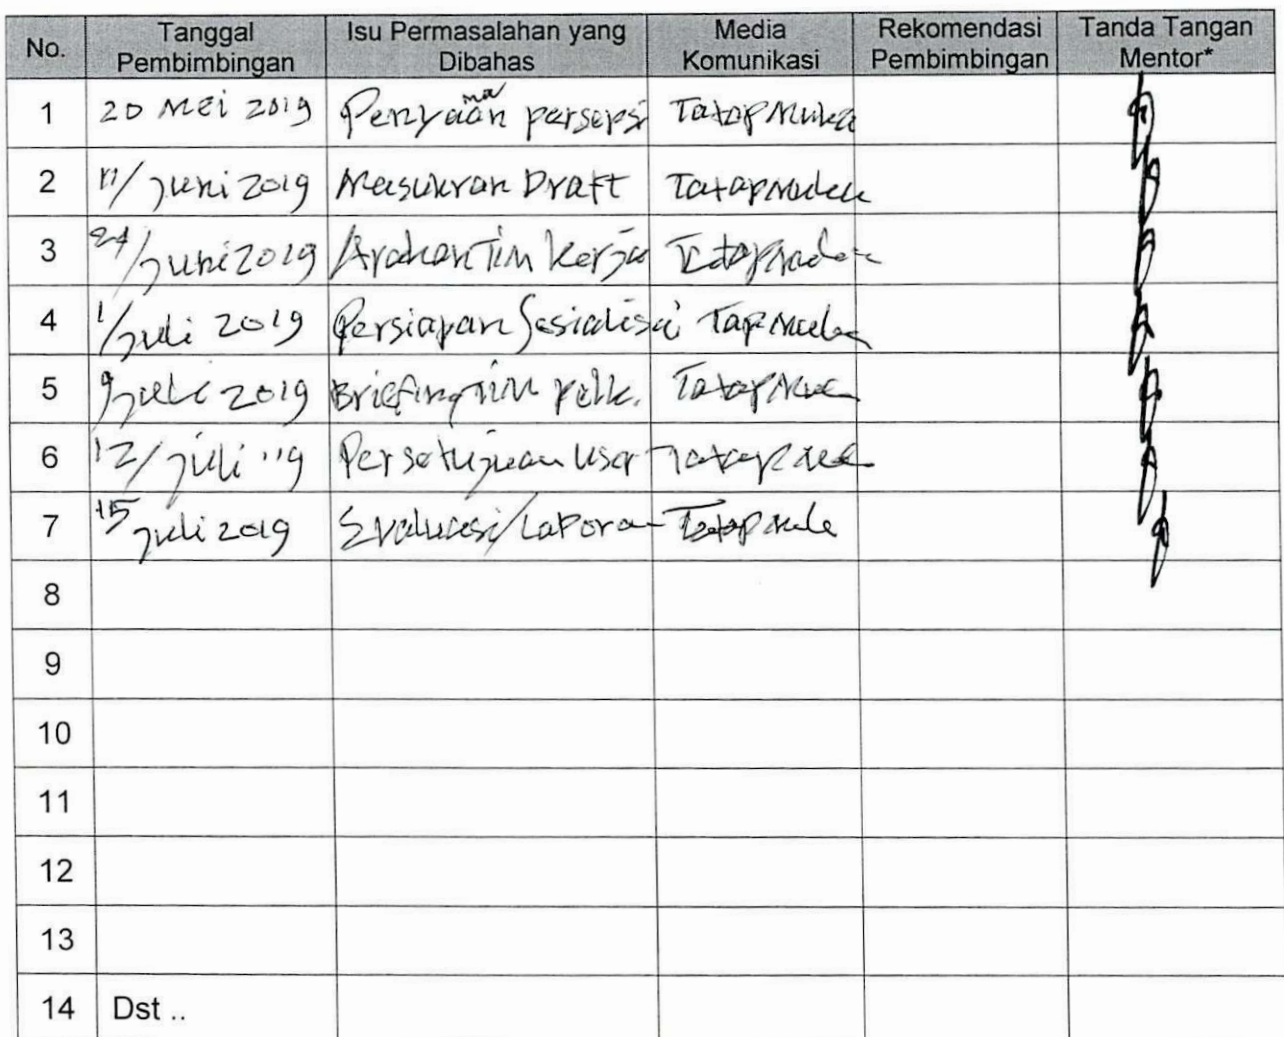 No. Tanggal Pembimbingan Isu Permasalahan yang Dibahas Media Komunikasi Rekomendasi Pembimbingan Tanda Tangan Mentor*
1 20 Mei 2019 Penyamaan persepsi Tatap Muka
2 11/Juni 2019 Masukan Draft Tatap muka
3 24/Juni 2019 Arahan Tim Kerja Tatap muka
4 1/Juli 2019 Persiapan Sosialisasi Tap Muka
5 9 Juli 2019 Briefing Tim Tatap Mua
6 12/Juli '19 Persetujuan User Tatap
7 15 Juli 2019 Evaluasi/Lapora Tatap Muka
8
9
10
11
12
13
14 Dst ..